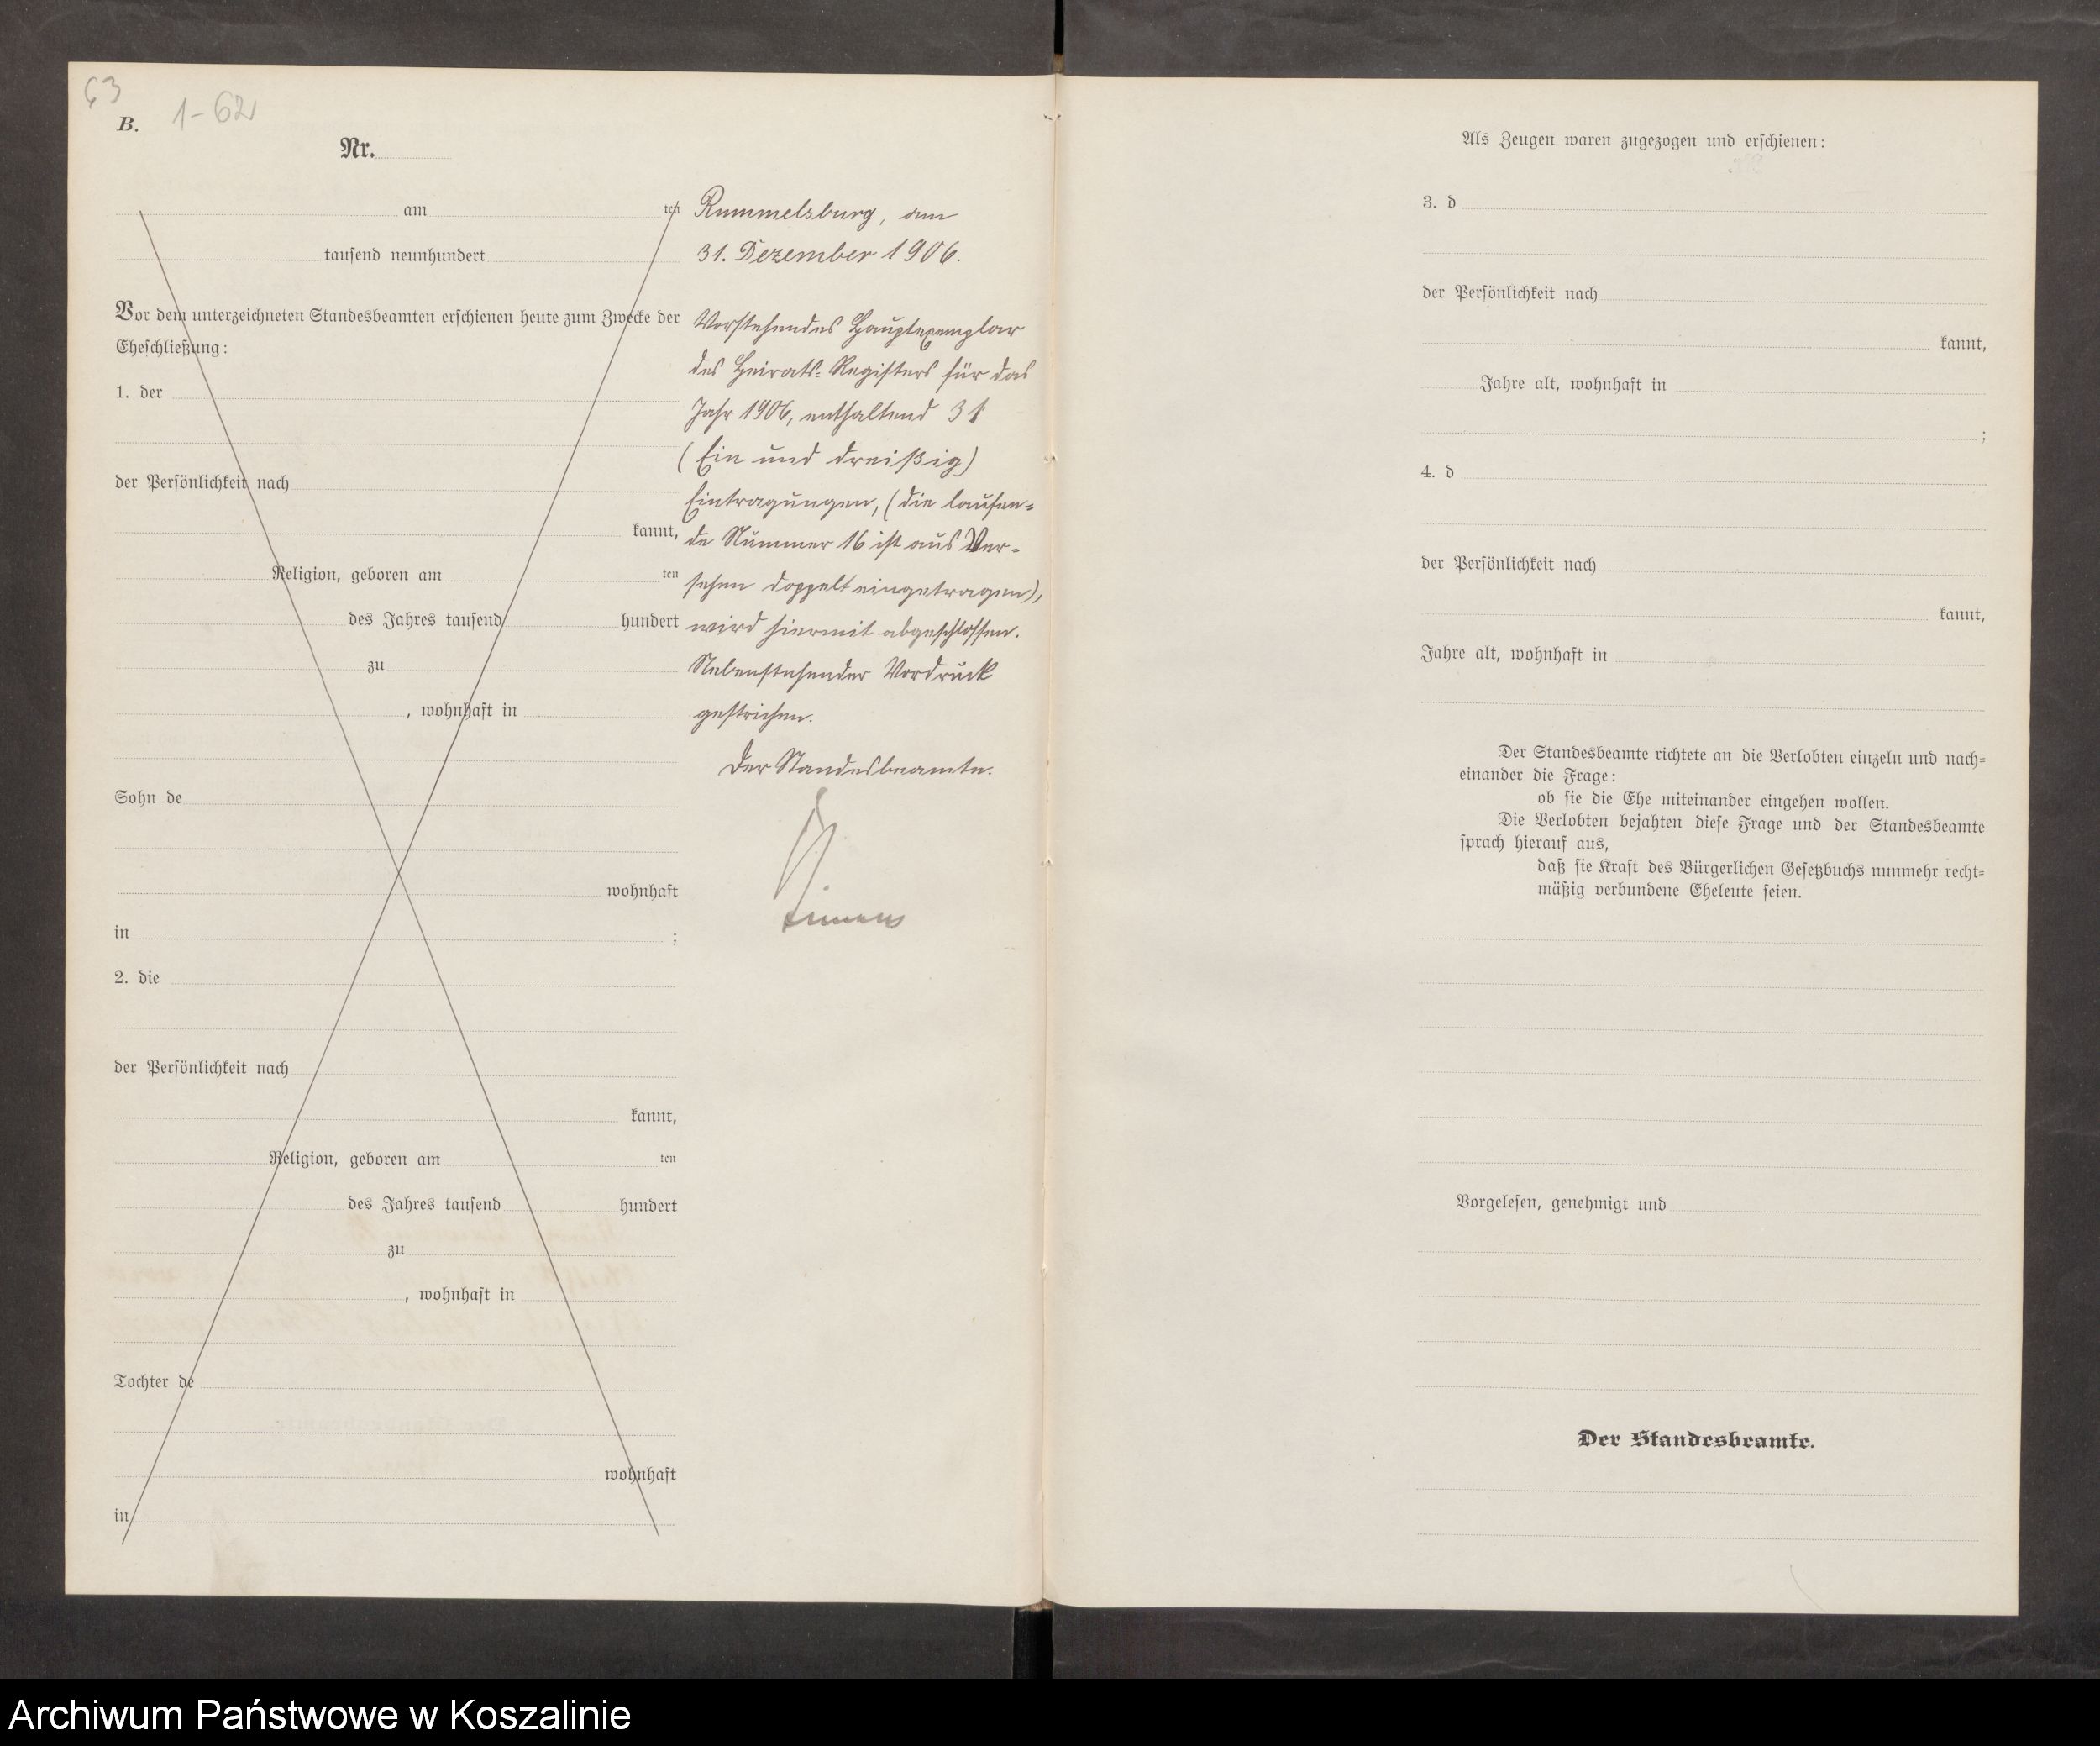 63
1-62
B.
Nr.
am ten
tausend neunhundert
Vor dem unterzeichneten Standesbeamten erschienen heute zum Zwecke der
Eheschließung:
1. der
der Persönlichkeit nach
kannt,
Religion, geboren am ten
des Jahres tausend hundert
zu
, wohnhaft in
Sohn de
wohnhaft
in ;
2. die
der Persönlichkeit nach
kannt,
Religion, geboren am ten
des Jahres tausend hundert
zu
, wohnhaft in
Tochter de
wohnhaft
in
Rummelsburg, am
31. Dezember 1906.
Vorstehendes Hauptexemplar
des Heirats-Registers für das
Jahr 1906, enthaltend 31
(Ein und dreißig)
Eintragungen, (die laufen-
de Nummer 16 ist aus Ver-
sehen doppelt eingetragen),
wird hiermit abgeschlossen.
Nebenstehender Vordruck
gestrichen.
Der Standesbeamte.
Als Zeugen waren zugezogen und erschienen:
3. d
der Persönlichkeit nach
kannt,
Jahre alt, wohnhaft in
;
4. d
der Persönlichkeit nach
kannt,
Jahre alt, wohnhaft in
Der Standesbeamte richtete an die Verlobten einzeln und nach-
einander die Frage:
ob sie die Ehe miteinander eingehen wollen.
Die Verlobten bejahten diese Frage und der Standesbeamte
sprach hierauf aus,
daß sie Kraft des Bürgerlichen Gesetzbuchs nunmehr recht-
mäßig verbundene Eheleute seien.
Vorgelesen, genehmigt und
Der Standesbeamte.
Archiwum Państwowe w Koszalinie